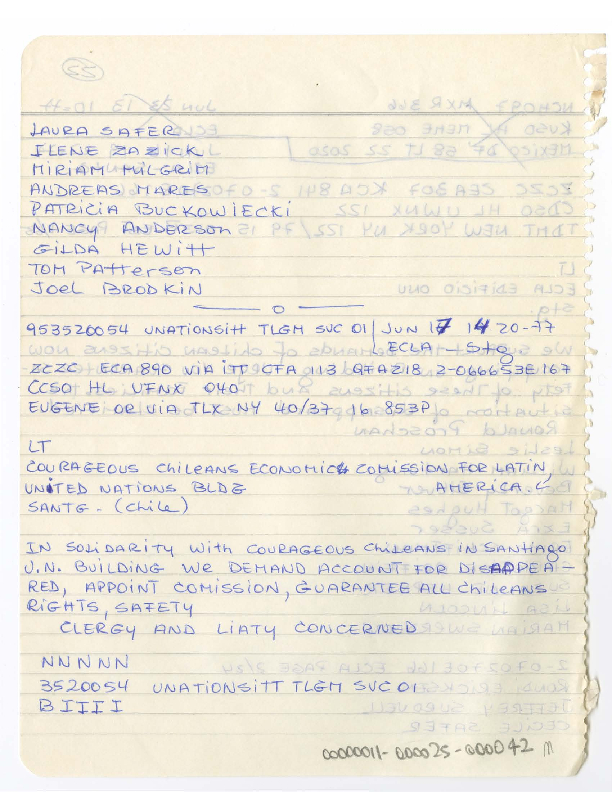 55
LAURA SAFER
ILENE ZAZICK
MIRIAM MILGRIM
ANDREAS MARES
PATRICIA BUCKOWIECKI
NANCY ANDERSON
GILDA HEWITT
TOM PATTERSON
JOEL BRODKIN
953520054 UNATIONSITT TLGM SVC 01 JUN 17 14 20-77
ECLA Stg
ZCZC ECA890 VIA ITT CFA113 QFAZ18 2-066653E167
CCSO HL UFNX 040
EUGENE OR VIA TLX NY 40/37 16 853P
LT
COURAGEOUS CHILEANS ECONOMIC COMISSION FOR LATIN
UNITED NATIONS BLDG AMERICA.
SANTG - (Chile)
IN SOLIDARITY WITH COURAGEOUS CHILEANS IN SANTIAGO
U.N. BUILDING WE DEMAND ACCOUNT FOR DISAPPEA-
RED, APPOINT COMISSION, GUARANTEE ALL CHILEANS
RIGHTS, SAFETY
CLERGY AND LIATY CONCERNED
NNNNN
3520054 UNATIONSITT TLGM SVC 01
BIIII
00000011-000025-000042 M